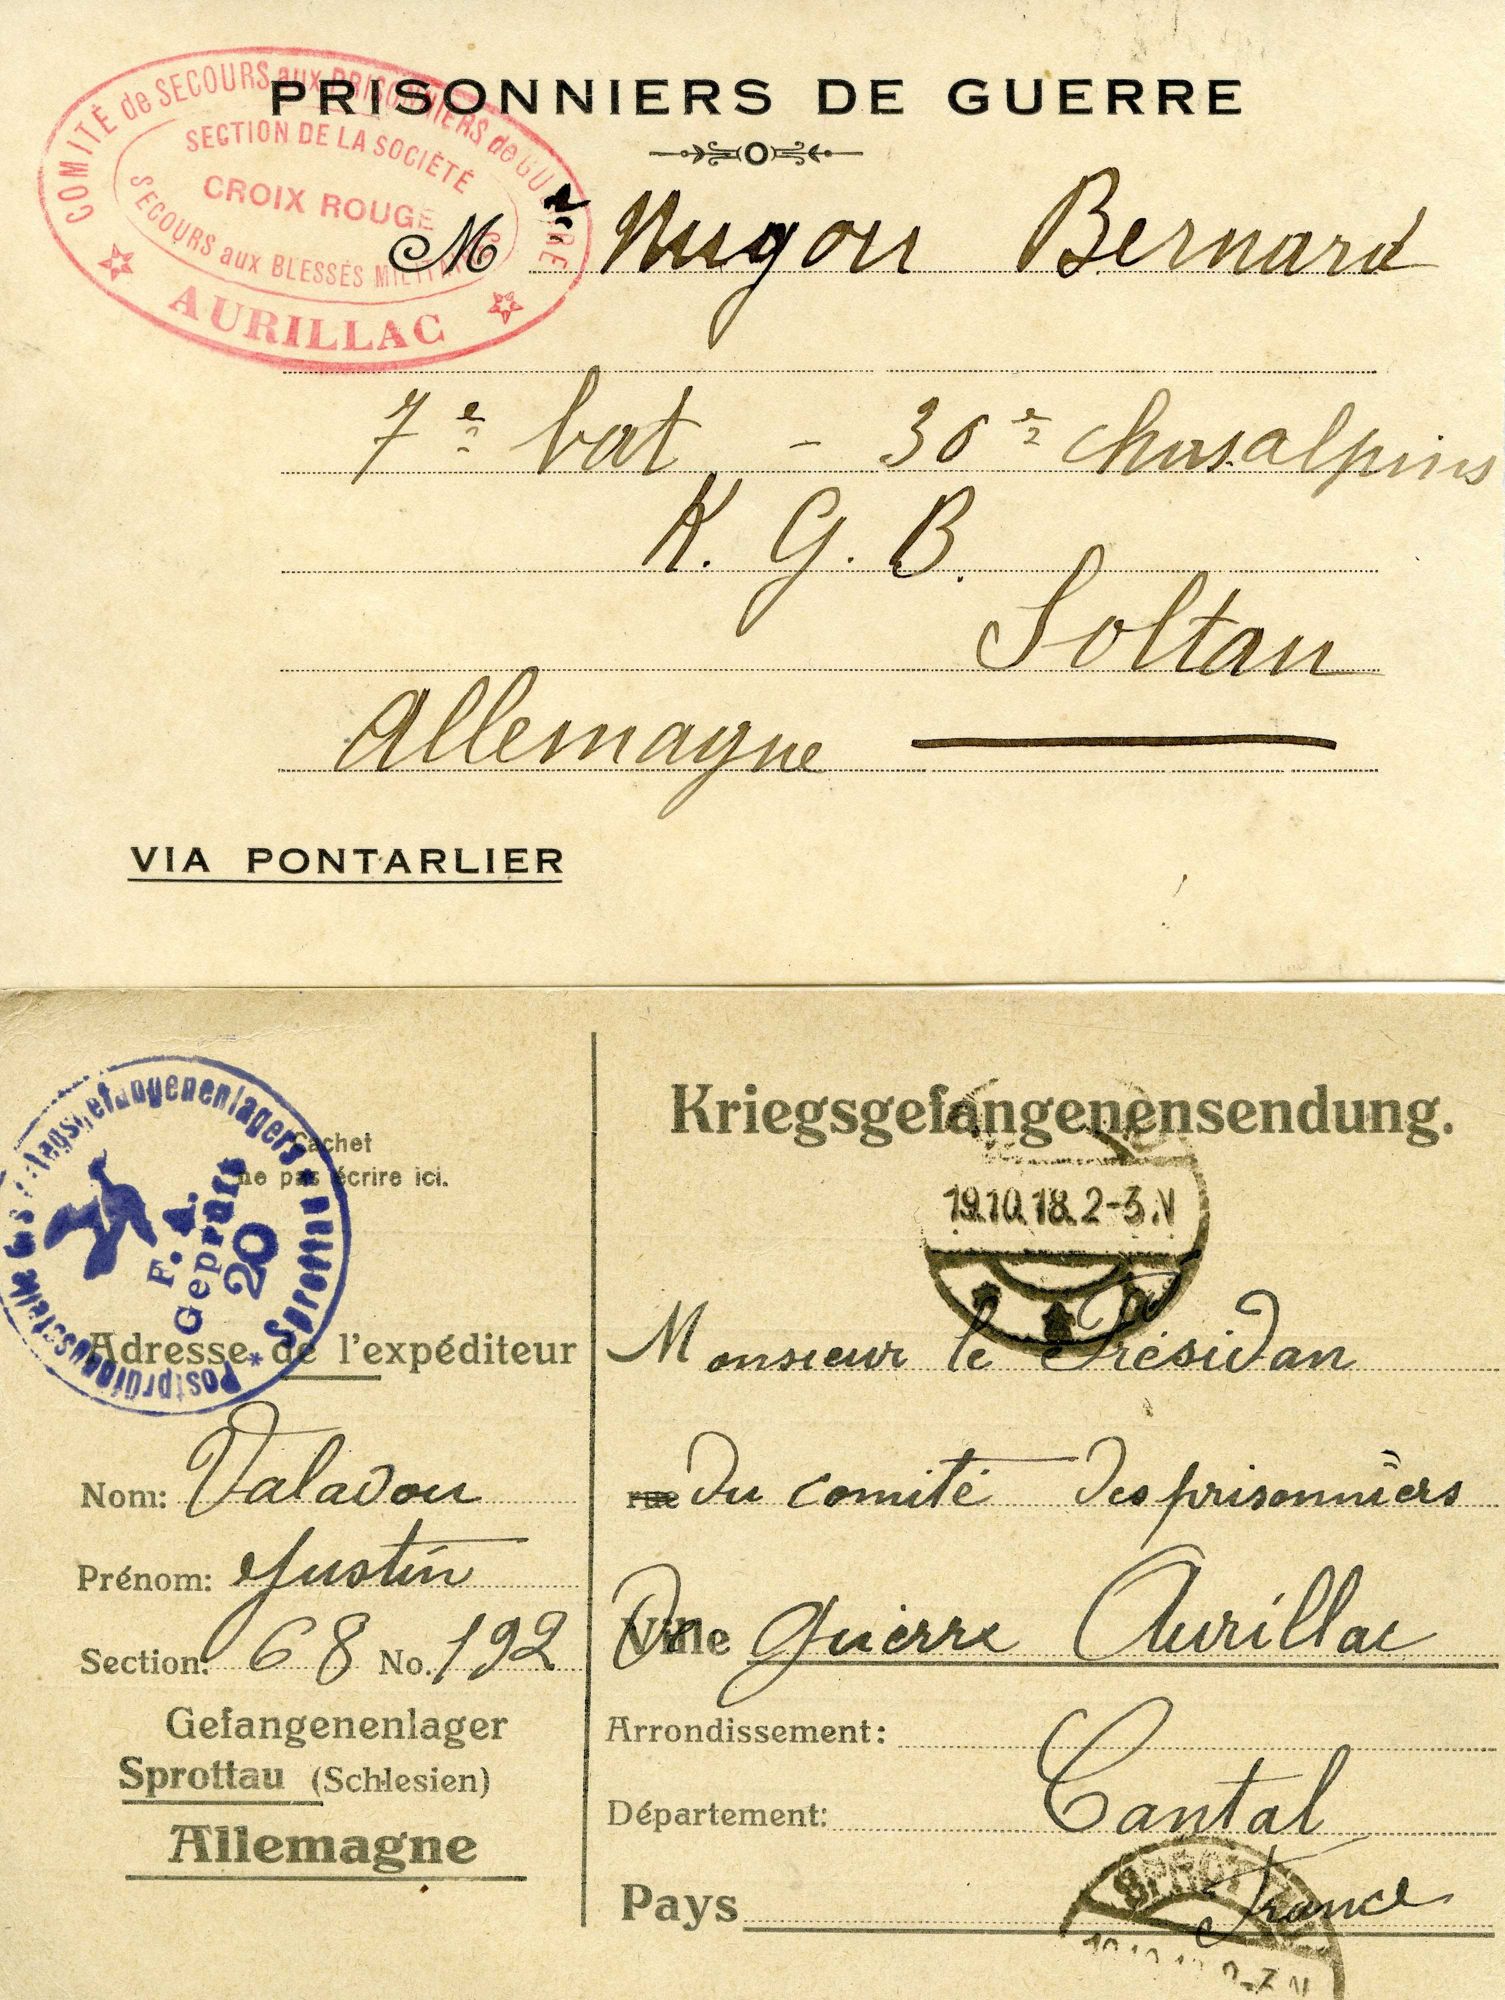 PRISONNIERS DE GUERRE
COMITÉ de SECOURS aux PRISONNIERS de GUERRE
SECTION DE LA SOCIÉTÉ
CROIX ROUGE
SECOURS aux BLESSÉS MILITAIRES
AURILLAC
Mr Nugou Bernard
7e bat - 36e chas. alpins
K. G. B.
Soltau
Allemagne
VIA PONTARLIER
Kriegsgefangenensendung.
Cachet
ne pas écrire ici.
Postprüfungsstelle des Kriegsgefangenenlagers Sprottau *
F. A.
Geprüft
20
19.10.18. 2-3.N
Adresse de l'expéditeur
Nom: Valadou
Prénom: Justin
Section: 68 No. 192
Gefangenenlager
Sprottau (Schlesien)
Allemagne
Monsieur le Présidan
rue du comité des prisonnièrs
Ville De guèrre Aurillac
Arrondissement:
Département: Cantal
Pays France
SPROTTAU